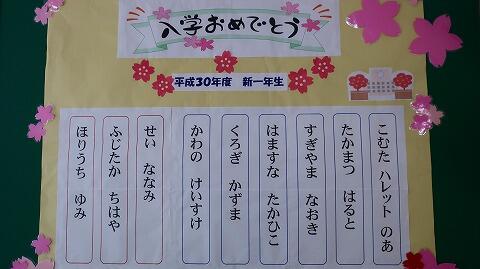 入学おめでとう
平成30年度 新一年生
こむた ハレット のあ
たかまつ はると
すぎやま なおき
はますな たかひこ
くろぎ かずま
かわの けいすけ
せい ななみ
ふじたか ちはや
ほりうち ゆみ